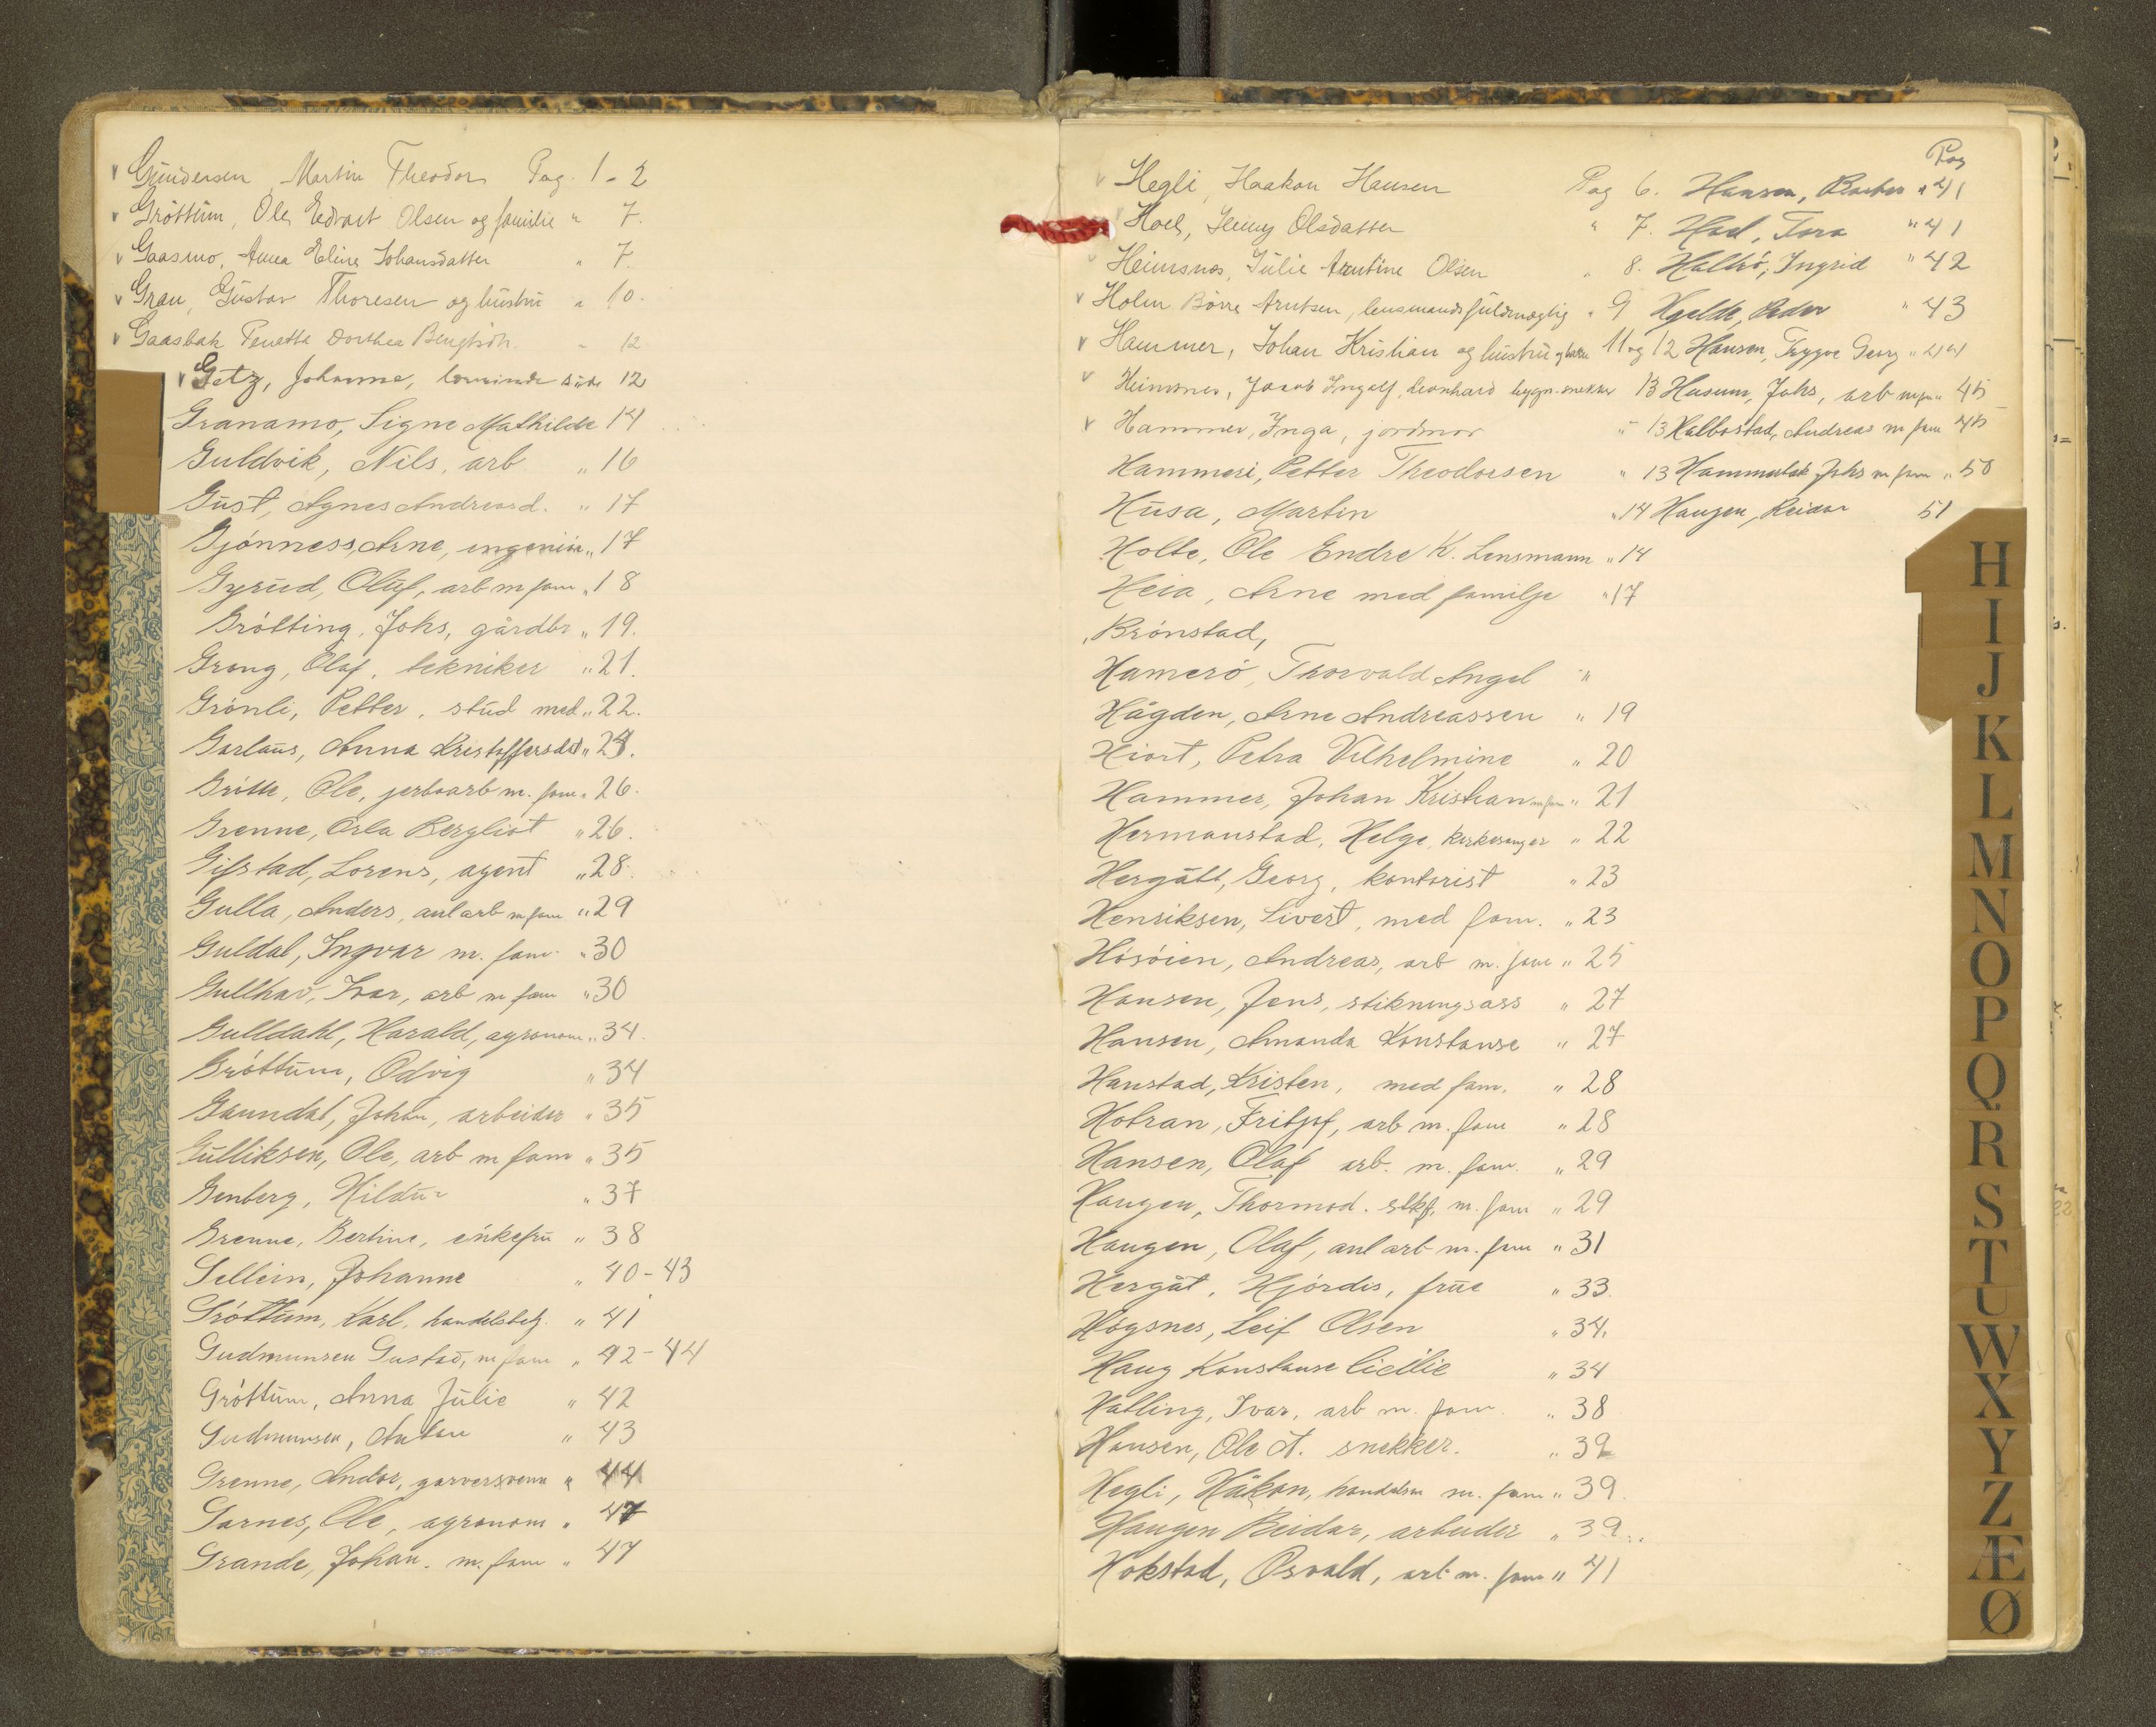 Gundersen, Martin Theodor Pag. 1-2
Gröttum, Ole Edvart Olsen og familie " 7.
Gaasmo, Anna Eline Johansdatter " 7.
Grau, Gustav Thoresen og hustru " 10.
Gaasbak Penette Dorthea Bengtsdtr. " 12
Getz, Johanne, side 12
Granamo, Signe Mathilde 14
Guldvik, Nils, arb " 16
Gust, Agnes Andreasd. " 17
Gjönness, Arne, ingeniör " 17
Gyrud, Oluf, arb m fam " 18
Grötting, Johs, gårdbr " 19.
Grong, Olaf, tekniker " 21.
Grönli, Petter, stud med " 22.
Garlaus, Anna Kristoffersdat " 24.
Grötte, Ole, jerbaarb m. fam. " 26.
Grenne, Orla Bergliot " 26.
Gifstad, Lorens, agent " 28.
Gulla, Anders, anl arb m fam " 29
Guldal, Ingvar m. fam. " 30
Gullhav, Ivar, arb m fam " 30
Gulldahl, Harald, agronom " 34.
Gröttum, Odvig " 34
Gaundal, Johan, arbeider " 35
Gulliksen, Ole, arb m fam " 35
Genberg, Hildur " 37
Grenne, Bertine, enkefru " 38
Sellein, Johanne " 40-43
Gröttum, Karl, handelsbetj. " 41
Gudmunsen Gustav, m fam " 42-44
Gröttum, Anna Julie " 42
Gudmunsen, Anton " 43
Grenne, Andor, garversvenn " 44
Garnes, Ole, agronom " 47
Grande, Johan. m. fam " 47
Pag
Hegli, Haakon Hansen Pag 6. Hansen, Barber " 41
Hoel, Jenny Olsdatter " 7. Hoel, Tora " 41
Heimsnes, Julie Arntine Olsen " 8. Halkö, Ingrid " 42
Holm Börre Arntsen, lensmandsfuldmægtig " 9 Hjelde, Peder " 43
Hammer, Johan Kristian og hustru og barn 11 og 12 Hansen, Trygve Georg " 44
Heimsnes, Jacob Ingolf, Leonhard bygn. snekker 13 Husum, Johs, arb m fa " 45
Hammer, Inga, jordmor " 13 Halbostad, Andreas m fam 45
Hammeri, Petter Theodorsen " 13 Hammerbak Johs m fam " 50
Husa, Martin " 14 Haugen, Reidar 51
Holte, Ole Endre K. Lensmann " 14
Heia, Arne med familje " 17
Brönstad,
Hamerö, Thorvald Angel "
Hågden, Arne Andreassen " 19
Hiort, Petra Vilhelmine " 20
Hammer, Johan Kristian m fam " 21
Hermanstad, Helge, kirkesanger " 22
Hergått, Georg, kontorist " 23
Henriksen, Sivert, med fam. " 23
Hösöien, Andreas, arb m. fam " 25
Hansen, Jens, stikningsass " 27
Hansen, Amanda Konstanse " 27
Hanstad, Kristen, med fam. " 28
Hotran, Fritjof, arb m. fam " 28
Hansen, Olaf arb. m. fam. " 29
Haugen, Thormod. slkf. m. fam " 29
Haugen, Olaf, anl arb m. fam " 31
Hergåt, Hjördis, frue " 33.
Högsnes, Leif Olsen " 34.
Haug Konstanse Cicilie " 34
Halling, Ivar, arb m. fam. " 38
Hansen, Ole A. snekker. " 39
Hegli, Håkon, handelsm m. fam " 39.
Haugen Reidar, arbeider " 39..
Hokstad, Osvald, arb m. fam " 41
H
I
J
K
L
M
N
O
P
Q
R
S
T
U
W
X
Y
Z
Æ
Ø